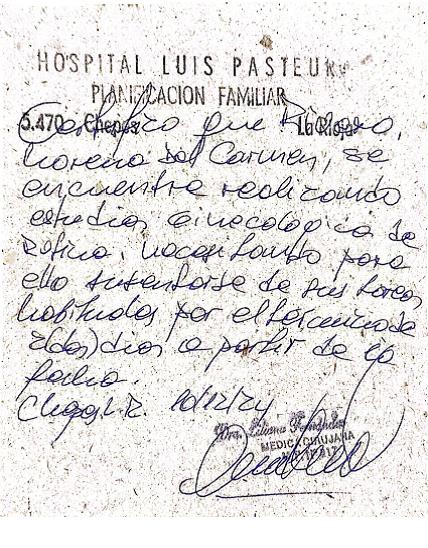 HOSPITAL LUIS PASTEUR
PLANIFICACION FAMILIAR
5.470 Chepes La Rioja
Certifico que
Moreno del Carmen, se
encuentra realizando
estudios ginecologico de
rutina. necesitando para
ello ausentarse de sus tareas
habituales por el termino de
2(dos) dias a partir de la
fecha.
10/12/24
Dra. Liliana
MEDICA CIRUJANA